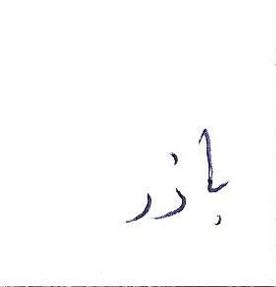 باذر